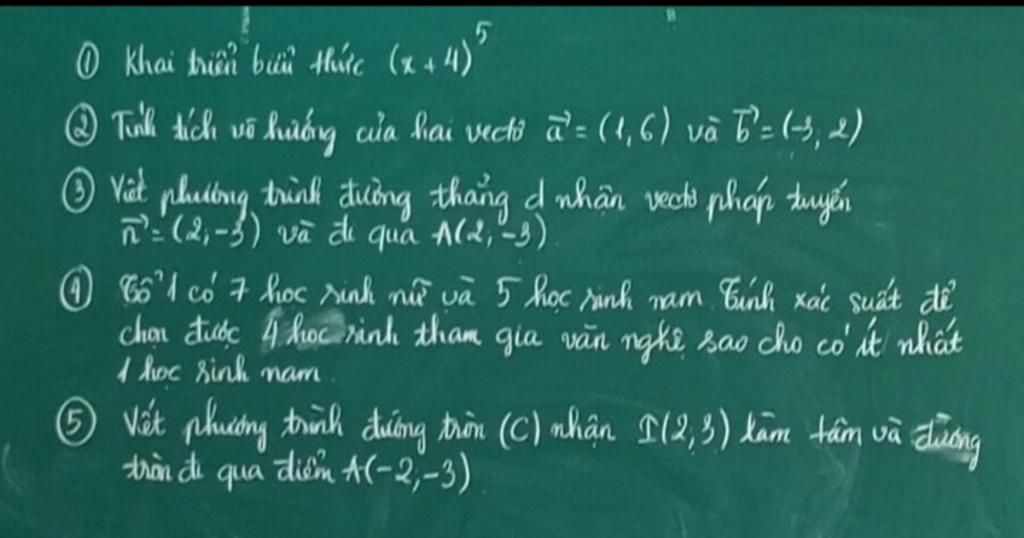 ① Khai triển biểu thức (x + 4)^5
② Tính tích vô hướng của hai vectơ a⃗ = (1, 6) và b⃗ = (-3, 2)
③ Viết phương trình đường thẳng d nhận vectơ pháp tuyến
n⃗ = (2, -3) và đi qua A(2, -3)
④ Tổ 1 có 7 học sinh nữ và 5 học sinh nam Tính xác suất để
chọn được 4 học sinh tham gia văn nghệ sao cho có ít nhất
1 học sinh nam.
⑤ Viết phương trình đường tròn (C) nhận I(2, 3) làm tâm và đường
tròn đi qua điểm A(-2, -3)